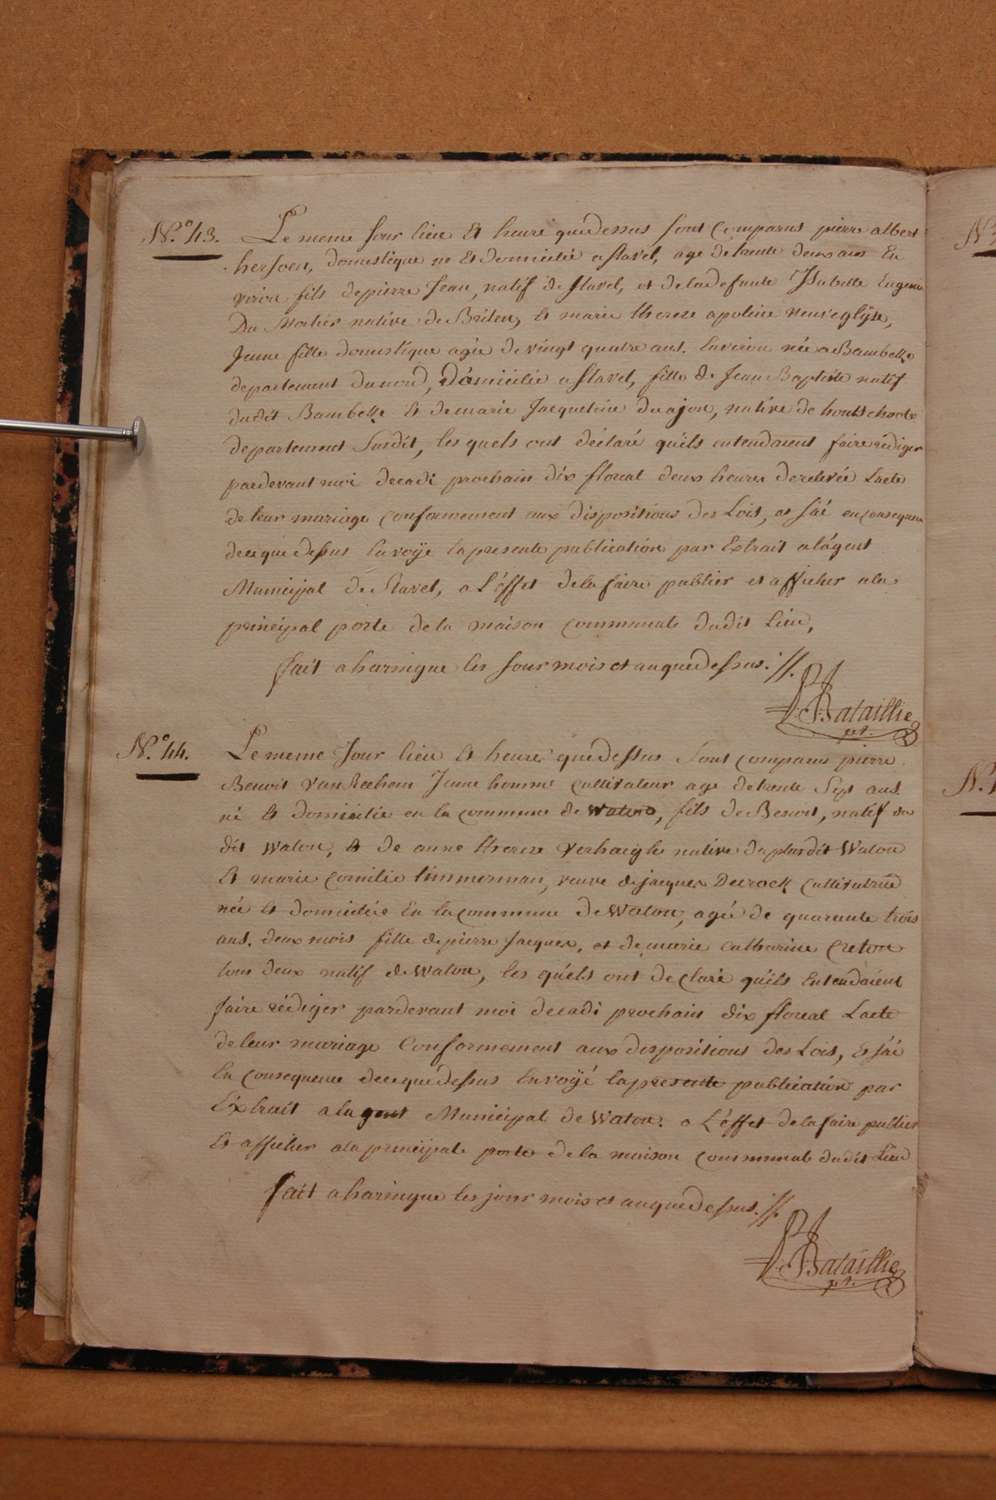 N.° 43. Le meme Jour lieu Et heure quedessus sont Comparus pierre albert
hersoen, domestique né Et domicilié a Stavel, agé de trente deux ans En
viron fils depierre Jean, natif de Stavel, et deladefunte Isabelle Eugenie
Du Mortier native de Brilen, Et marie therese apoline neuveglise,
Jeune fille domestique agée de vingt quatre ans. Environ née a Bambeke
departement dunord, Domiciliée a Stavel, fille de Jean Baptiste natif
dudit Bambeke Et demarie Jacqueline dugajon, native de hontschoote
departement Susdit, les quels ont déclaré quils entendaient faire rédiger
pardevant moi decadi prochain dix floreal deux heures derelevée Lacte
de leur mariage conformement aux dispositions des Lois, et J'ai en consequence
dece que dessus Envoÿé la presente publication par Extrait a lágent
Municipal de Stavel, a L'effet delafaire publier et afficher ala
principal porte dela maison communale dudit Lieu,
fait a haringue les Jour mois et an quedessus.
Bataillie
pt.
N.° 44. Le meme Jour lieu Et heure quedessus Sont comparus pierre
Benoit Van Rechem Jeune homme cultivateur agé detrente Sept ans
né Et domicilié en la commune de Watou, fils de Benoit, natif du
dit Watou, Et de anne therese Verhaeghe native duplusdit Watou
Et marie Cornilie timmerman, veuve de jacques Decrock Cultivatrice
née Et domiciliée En la commune de Watou, agée de quarante trois
ans. deux mois fille depierre Jacques, et de marie catharine Creton
tous deux natif de Watou, les quels ont declaré quils Entendaient
faire rédiger pardevant moi decadi prochain dix floreal Lacte
deleur mariage Conformement aux dispositions des Lois, Et J'ai
En consequence dece quedessus Envoÿé lapresente publication par
Extrait a lagent Municipal de Watou. a L'effet de la faire publier
Et afficher ala principale porte de la maison communale dudit Lieu
fait a haringue les jour mois et an quedessus.
Bataillie
pt.